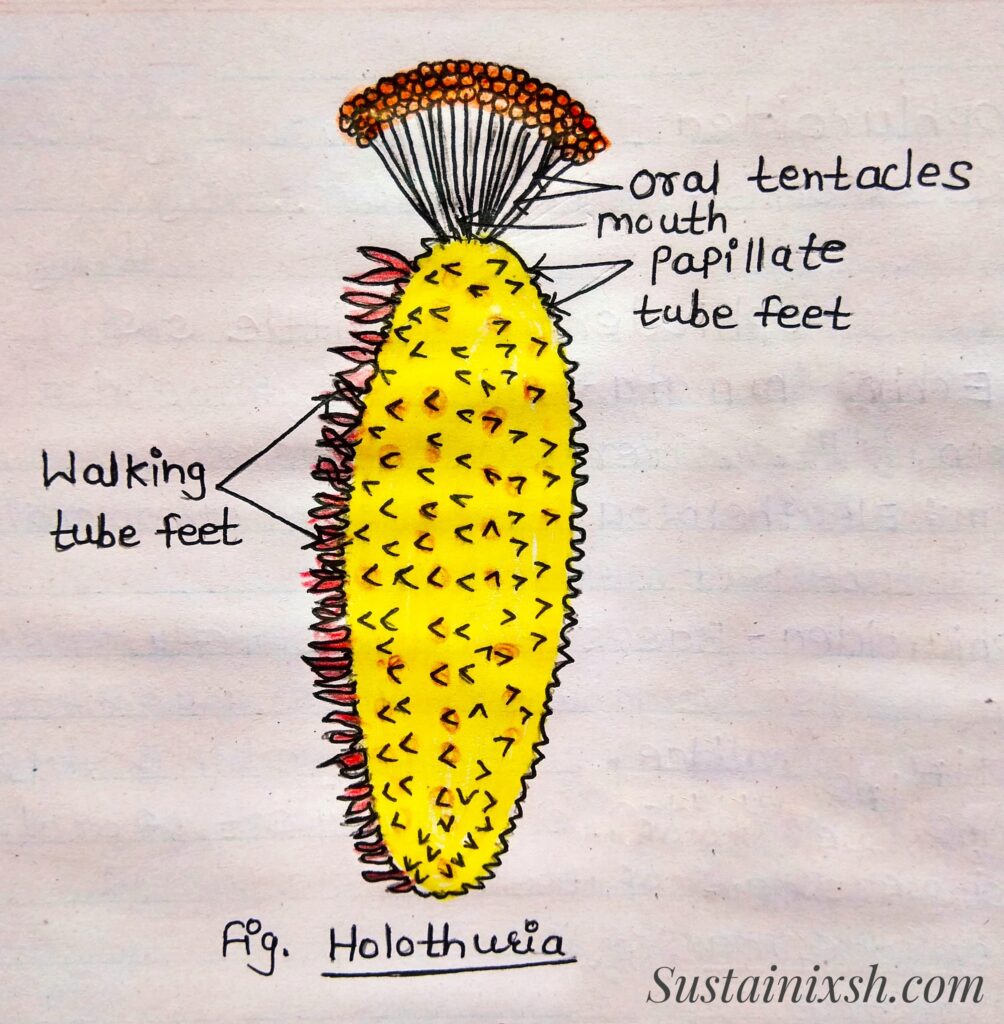 oral tentacles
mouth
papillate
tube feet
Walking
tube feet
Fig. Holothuria
Sustainixsh.com